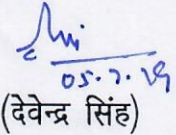 05.7.19
(देवेन्द्र सिंह)